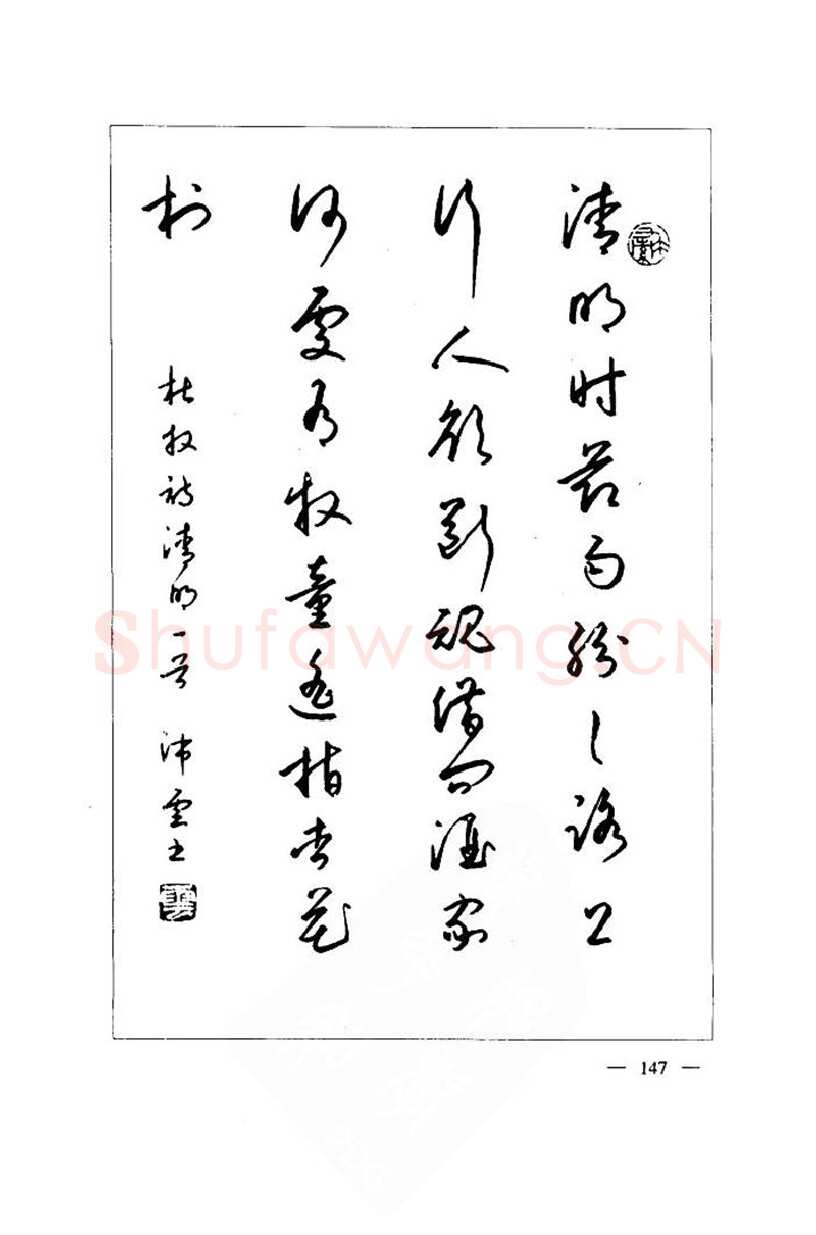 清明时节雨纷纷路上
行人欲断魂借问酒家
何處有牧童遥指杏花
村
杜牧诗清明一首 沛雲书
Shufawang.CN
— 147 —